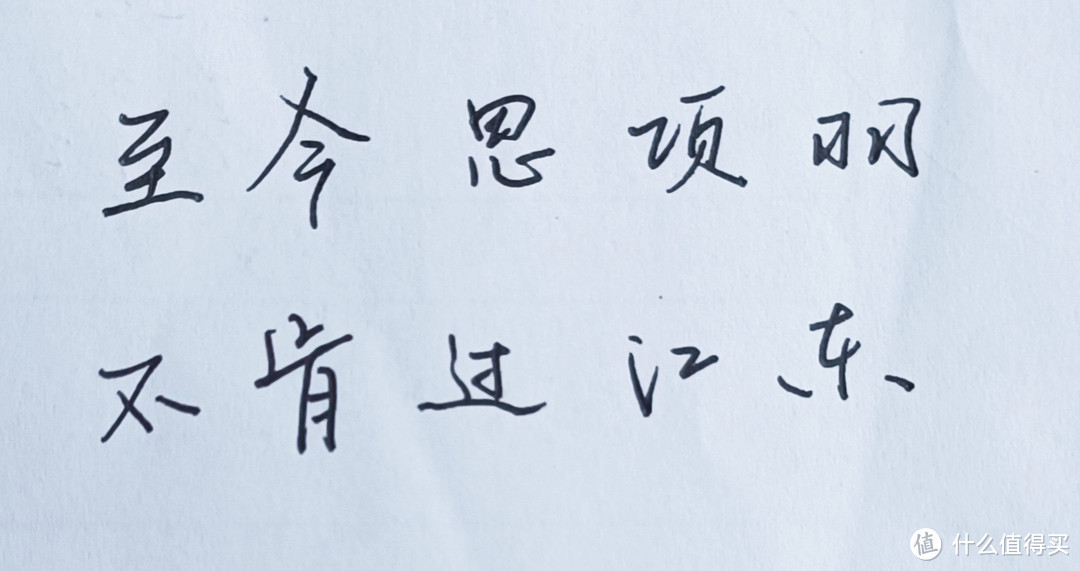 至今思项羽
不肯过江东
值 什么值得买